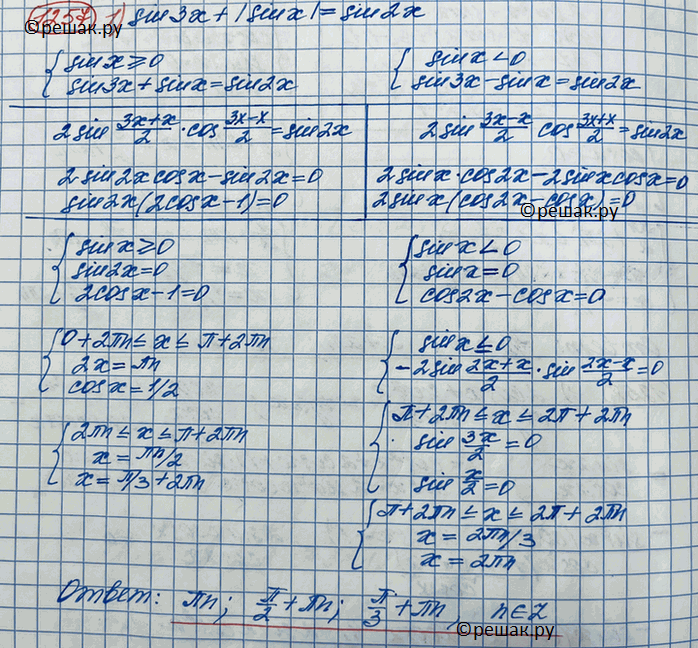 ©решак.ру
©решак.ру
1257 1) sin3x + |sinx| = sin2x
{ sinx ≥ 0
sin3x + sinx = sin2x
{ sinx < 0
sin3x - sinx = sin2x
2sin (3x+x)/2 · cos (3x-x)/2 = sin2x
2sin2x cosx - sin2x = 0
sin2x(2cosx - 1) = 0
2sin (3x-x)/2 cos (3x+x)/2 = sin2x
2sinx·cos2x - 2sinxcosx = 0
2sinx(cos2x - cosx) = 0
©решак.ру
{ sinx ≥ 0
sin2x = 0
2cosx - 1 = 0
{ sinx < 0
sinx = 0
cos2x - cosx = 0
{ 0 + 2πn ≤ x ≤ π + 2πn
2x = πn
cosx = 1/2
{ sinx ≤ 0
-2sin (2x+x)/2 · sin (2x-x)/2 = 0
{ 2πn ≤ x ≤ π + 2πn
x = πn/2
x = π/3 + 2πn
{ π + 2πn ≤ x ≤ 2π + 2πn
sin 3x/2 = 0
sin x/2 = 0
{ π + 2πn ≤ x ≤ 2π + 2πn
x = 2πn/3
x = 2πn
Ответ: πn; π/2 + πn; π/3 + πn, n∈Z
©решак.ру
©решак.ру